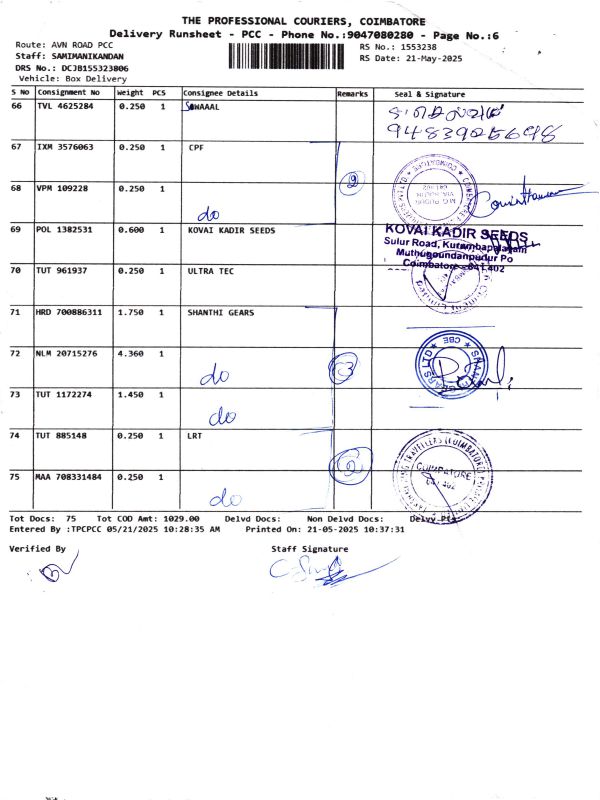 THE PROFESSIONAL COURIERS, COIMBATORE
Delivery Runsheet - PCC - Phone No.:9047080280 - Page No.:6
Route: AVN ROAD PCC
RS No.: 1553238
Staff: SAMIMANIKANDAN
RS Date: 21-May-2025
DRS No.: DCJB155323806
Vehicle: Box Delivery
S No Consignment No Weight PCS Consignee Details Remarks Seal & Signature
66 TVL 4625284 0.250 1
67 IXM 3576063 0.250 1 CPF
68 VPM 109228 0.250 1 do
2
69 POL 1382531 0.600 1 KOVAI KADIR SEEDS
KOVAI KADIR SEEDS
Sulur Road, Kurumbapalayam
Muthugoundanpudur Po
Coimbatore - 641 402
70 TUT 961937 0.250 1 ULTRA TEC
71 HRD 700886311 1.750 1 SHANTHI GEARS
72 NLM 20715276 4.360 1 do
3
73 TUT 1172274 1.450 1 do
74 TUT 885148 0.250 1 LRT
2
COIMBATORE
641 402
75 MAA 708331484 0.250 1 do
Tot Docs: 75 Tot COD Amt: 1029.00 Delvd Docs: Non Delvd Docs:
Entered By :TPCPCC 05/21/2025 10:28:35 AM Printed On: 21-05-2025 10:37:31
Verified By Staff Signature